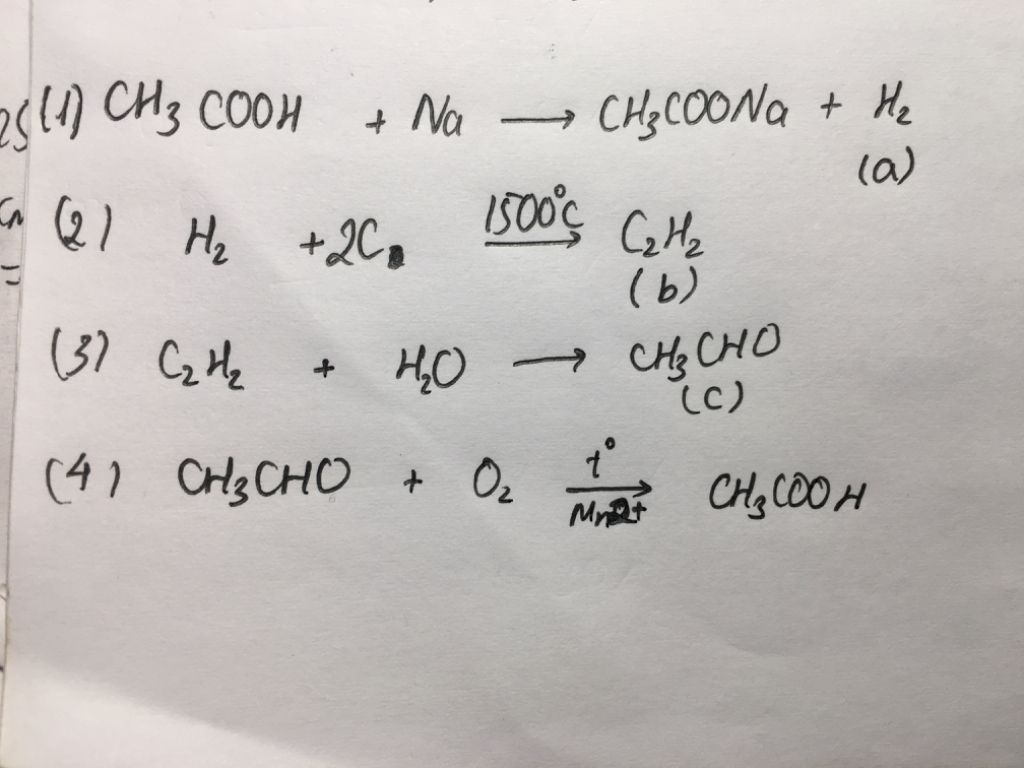 25
(1) CH3 COOH + Na → CH3COONa + H2
(a)
(2) H2 + 2C 1500°C → C2H2
(b)
=
(3) C2H2 + H2O → CH3CHO
(c)
(4) CH3CHO + O2 t° → Mn2+ CH3COOH